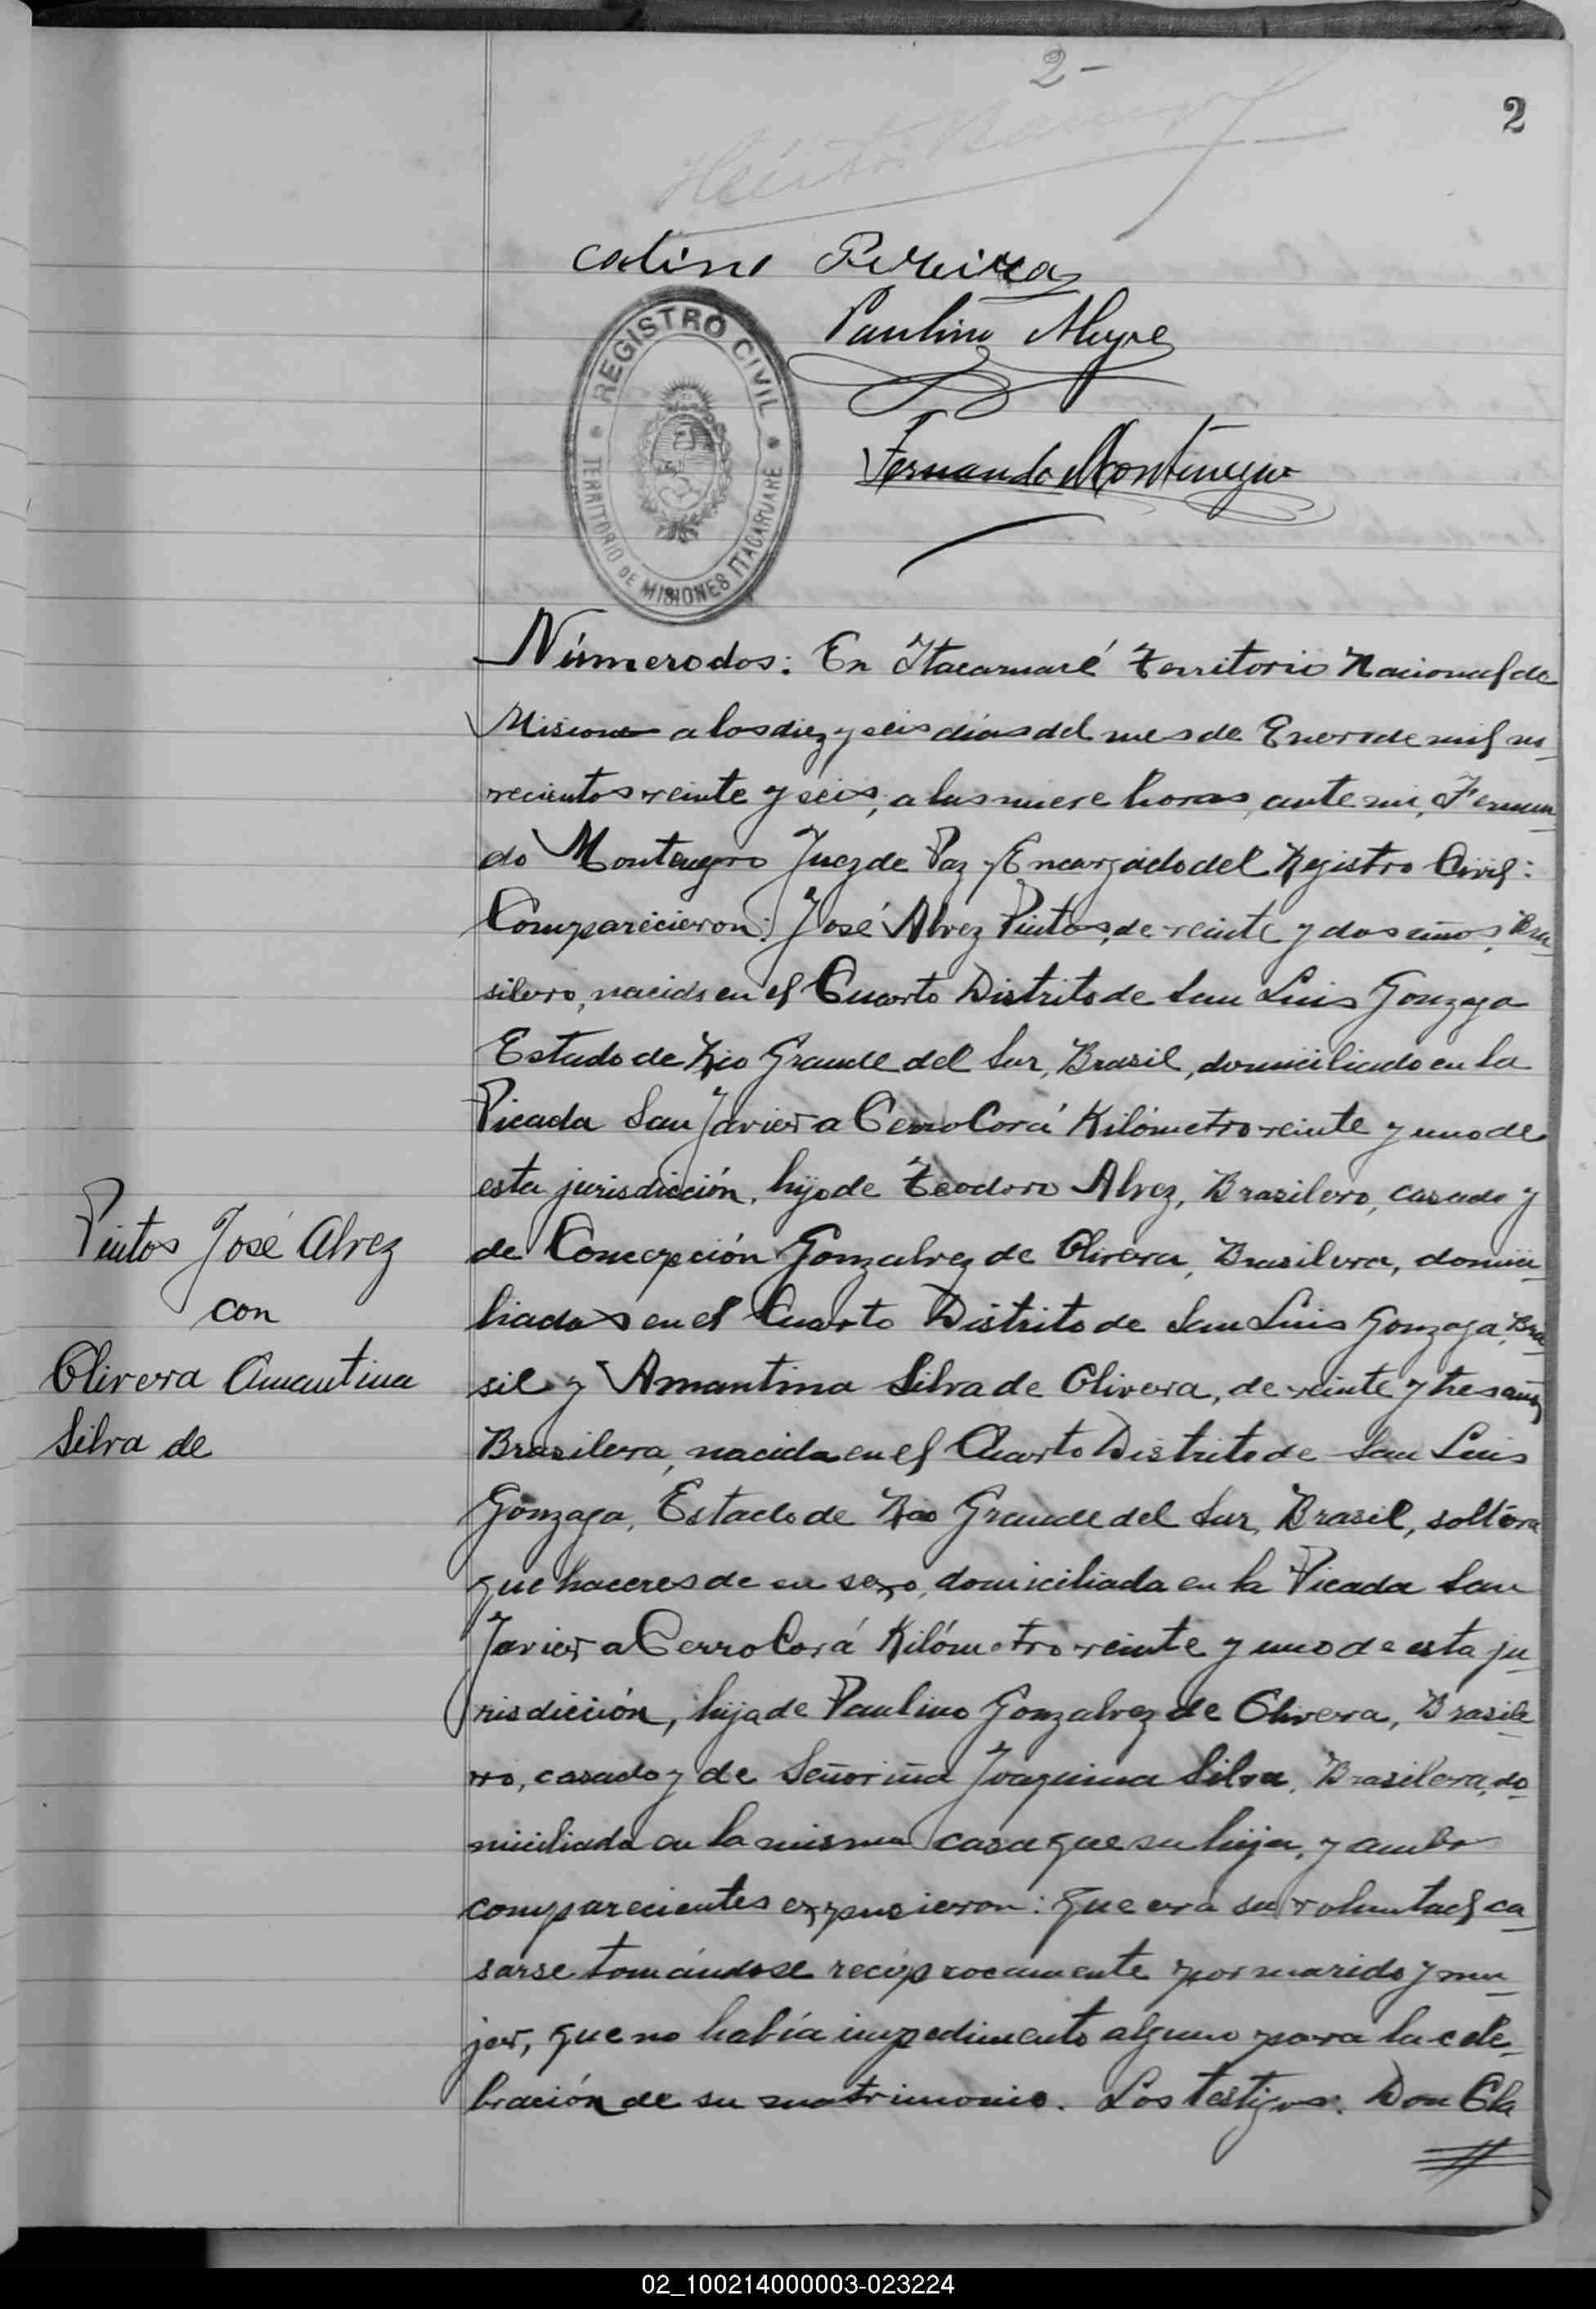 2-
2
Pereira
Paulino
Fernando Montenegro
REGISTRO CIVIL
TERRITORIO DE MISIONES ITACARUARE
Número dos: En Itacaruaré Territorio Nacional de
Misiones a los diez y seis dias del mes de Enero de mil no-
vecientos veinte y seis, a las nueve horas, ante mi, Fernan-
do Montenegro Juez de Paz y Encargado del Registro Civil:
Comparecieron: José Alvez Pintos, de veinte y dos años, Bra-
silero, nacido en el Cuarto Distrito de San Luis Gonzaga
Estado de Rio Grande del Sur, Brasil, domiciliado en la
Picada San Javier a Cerro Corá Kilómetro veinte y uno de
esta jurisdicción, hijo de Teodoro Alvez, Brasilero, casado y
de Concepción Gonzalvez de Olivera, Brasilera, domici-
liados en el Cuarto Distrito de San Luis Gonzaga, Bra-
sil y Amantina Silva de Olivera, de veinte y tres años
Brasilera, nacida en el Cuarto Distrito de San Luis
Gonzaga, Estado de Rio Grande del Sur, Brasil, soltera
que haceres de su sexo, domiciliada en la Picada San
Javier a Cerro Corá Kilómetro veinte y uno de esta ju-
risdicción, hija de Paulino Gonzalvez de Olivera, Brasile-
ro, casado y de Señoriña Joaquina Silva, Brasilera, do-
miciliada en la misma casa que su hija, y ambos
comparecientes expusieron: que era su voluntad ca-
sarse tomándose recíprocamente por marido y mu-
jer, que no había impedimento alguno para la cele-
bración de su matrimonio. Los testigos: Don Cla
Pintos José Alvez
con
Olivera Amantina
Silva de
02_100214000003-023224